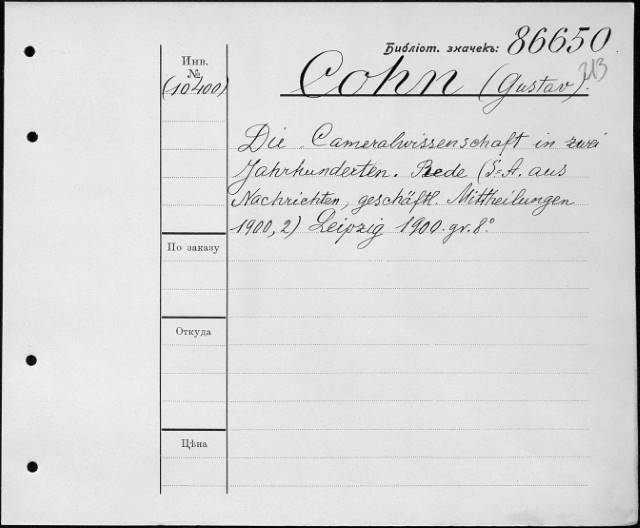 Библіот. значекъ: 86650
313
Инв.
№
(10400)
Cohn (Gustav).
Die Cameralwissenschaft in zwei
Jahrhunderten. Rede (S-A. aus
Nachrichten, geschäftl. Mittheilungen
1900, 2) Leipzig 1900. gr. 8°
По заказу
Откуда
Цѣна